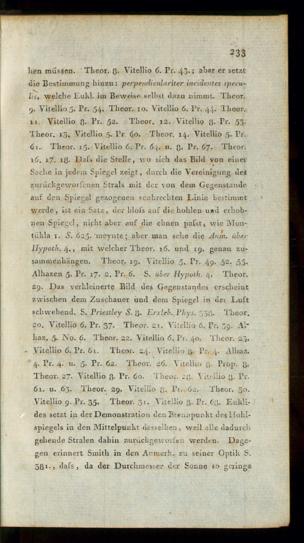 233
hen müssen. Theor. 8. Vitellio 6. Pr. 43.; aber er setzt
die Bestimmung hinzu: perpendiculariter incidentes specu-
lis, welche Eukl. im Beweise selbst dazu nimmt. Theor.
9. Vitellio 5. Pr. 54. Theor. 10. Vitellio 6. Pr. 44. Theor.
11. Vitellio 8. Pr. 52. Theor. 12. Vitellio 8. Pr. 53.
Theor. 13. Vitellio 5. Pr 60. Theor. 14. Vitellio 5. Pr.
61. Theor. 15. Vitellio 6. Pr. 64. u. 8. Pr. 67. Theor.
16. 17. 18. Daß die Stelle, wo sich das Bild von einer
Sache in jedem Spiegel zeigt, durch die Vereinigung des
zurückgeworfenen Strals mit der von dem Gegenstande
auf den Spiegel gezogenen senkrechten Linie bestimmt
werde, ist ein Satz, der bloß auf die hohlen und erhob-
nen Spiegel, nicht aber auf die ebnen paßt, wie Mon-
tükla 1. S. 625. meynte; aber man sehe die Anm. über
Hypoth. 4., mit welcher Theor. 16. und 19. genau zu-
sammenhängen. Theor. 19. Vitellio 5. Pr. 49. 52. 55.
Alhazen 5. Pr. 17. 2. Pr. 6. S. über Hypoth. 4. Theor.
29. Das verkleinerte Bild des Gegenstandes erscheint
zwischen dem Zuschauer und dem Spiegel in der Luft
schwebend. S. Priestley S. 8. Erxleb. Phys. 338. Theor.
20. Vitellio 6. Pr 37. Theor. 21. Vitellio 6. Pr. 39. Al-
haz. 5. No. 6. Theor. 22. Vitellio 6. Pr. 40. Theor. 23.
Vitellio 6. Pr. 61. Theor. 24. Vitellio 8. Pr. 4. Alhaz.
4. Pr. 4. u. 5. Pr. 62. Theor. 26. Vitellio 8. Prop. 8.
Theor. 27. Vitellio 8. Pr. 60. Theor. 28. Vitellio 8. Pr.
61. u. 63. Theor. 29. Vitellio 8. Pr. 62. Theor. 30.
Vitellio 9. Pr. 35. Theor. 31. Vitellio 8. Pr. 68. Eukli-
des setzt in der Demonstration den Brennpunkt des Hohl-
spiegels in den Mittelpunkt desselben, weil alle dadurch
gehende Stralen dahin zurückgeworfen werden. Dage-
gen erinnert Smith in den Anmerk. zu seiner Optik S.
381., daß, da der Durchmesser der Sonne so geringe